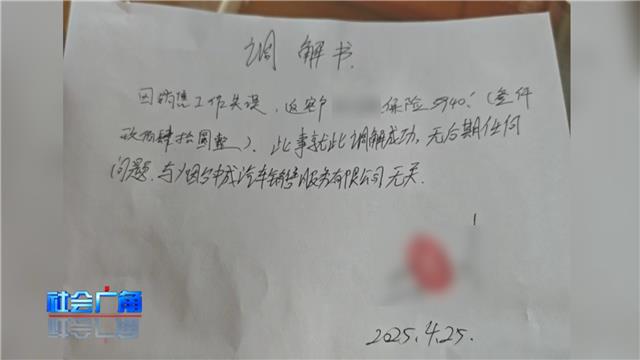 调解书
因销售工作失误，返客户 保险5940.(叁仟
玖佰肆拾圆整)。此事就此调解成功，无后期任何
问题.与烟台中成汽车销售服务有限公司无关.
2025.4.25.
社会广角